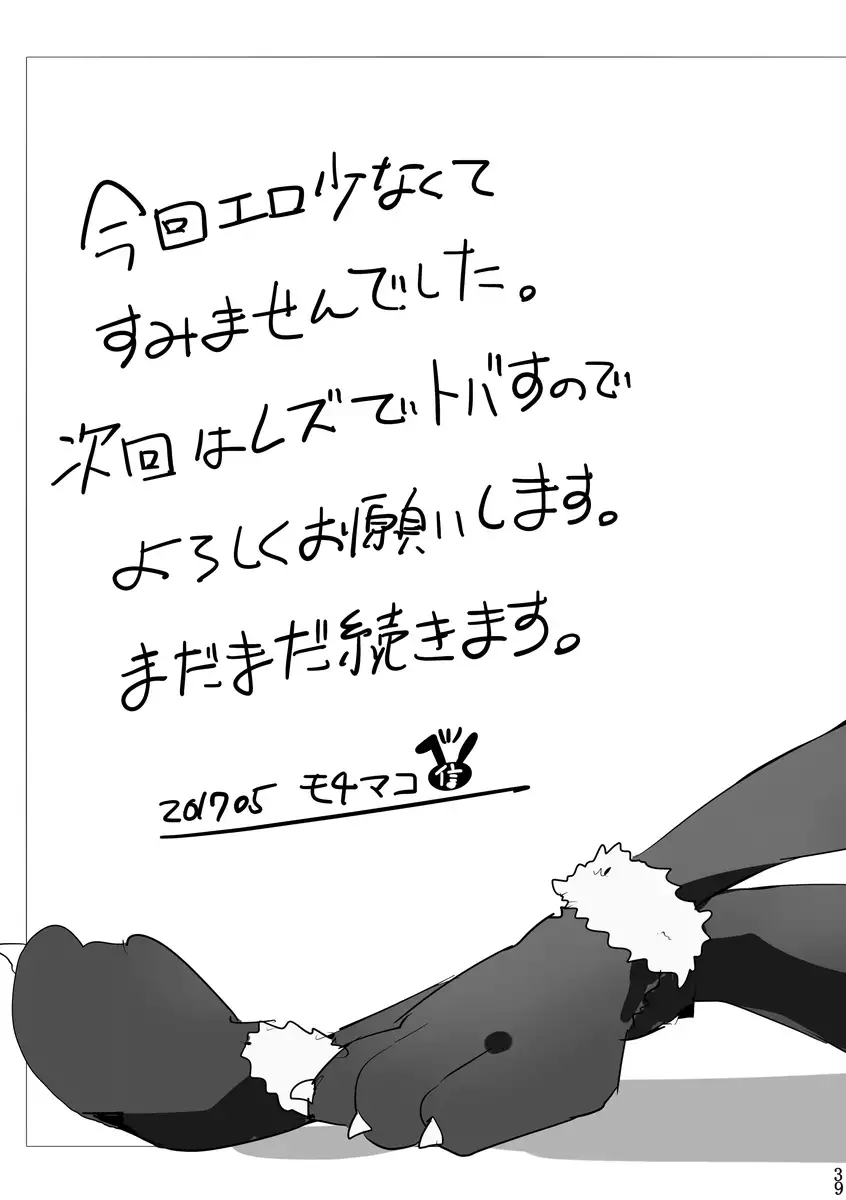 今回エロ少なくて
すみませんでした。
次回はレズでトバすので
よろしくお願いします。
まだまだ続きます。
201705 モチマコ
信
39